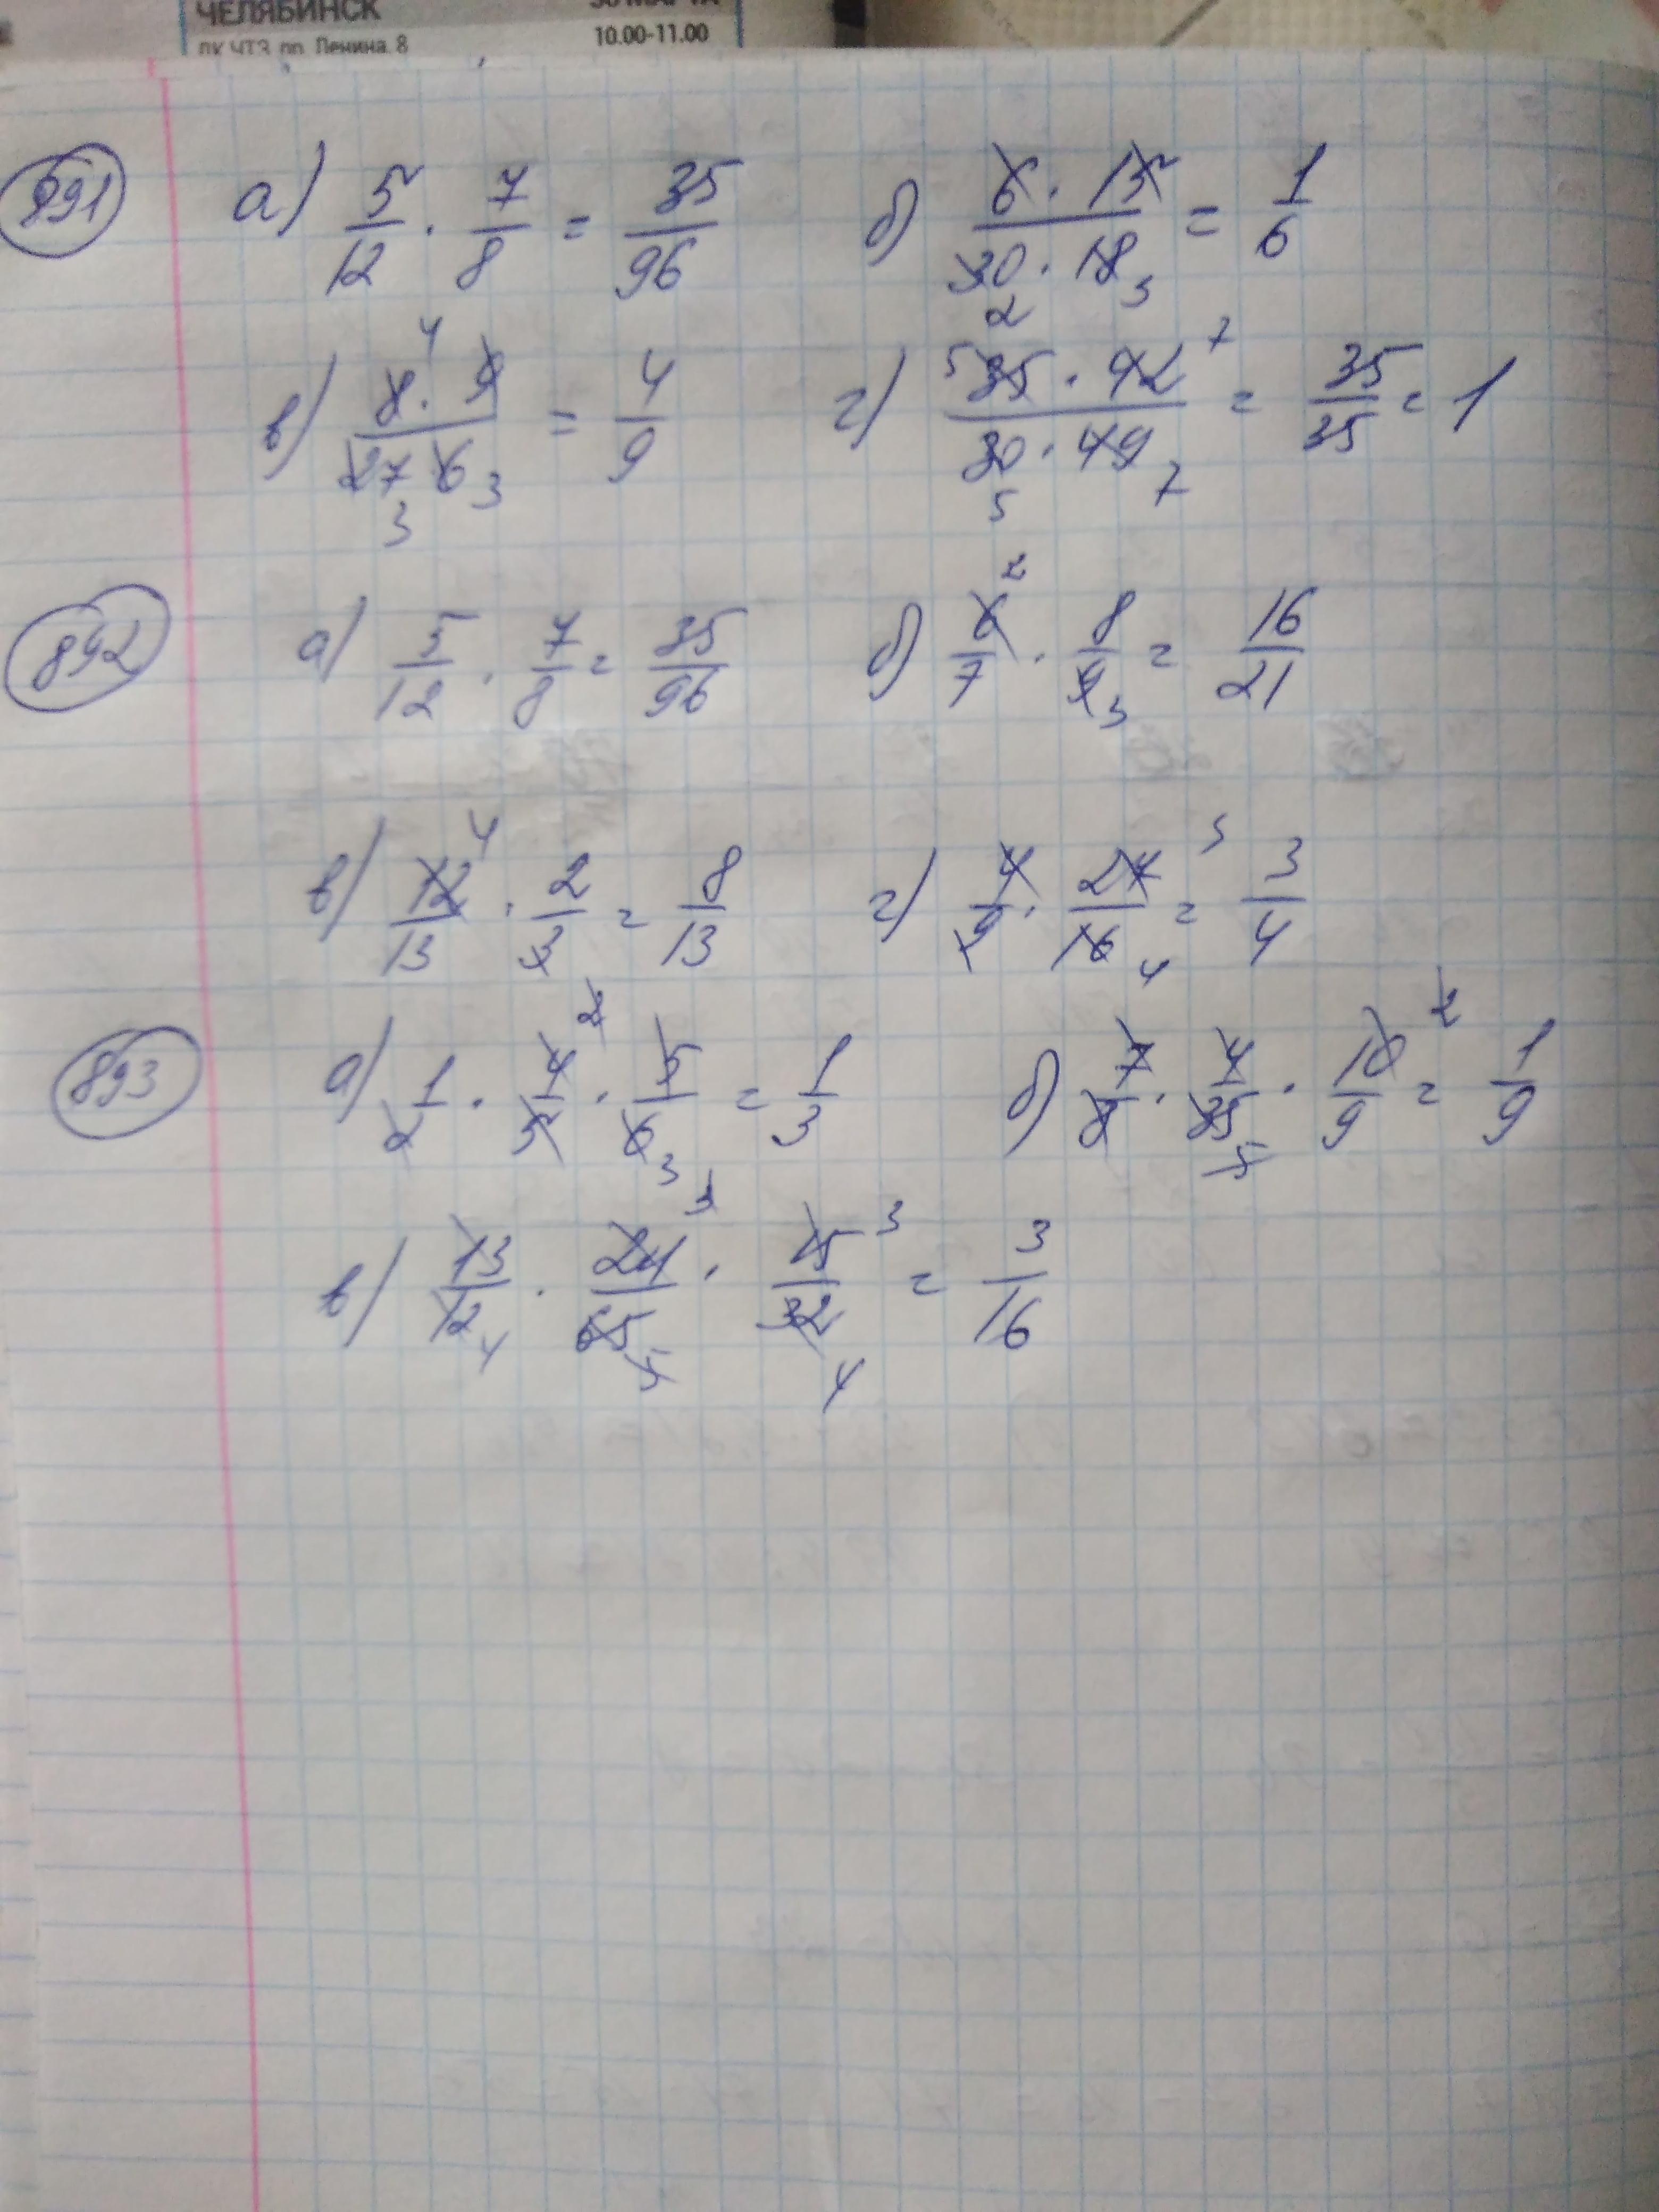 ЧЕЛЯБИНСК
ДК ЧТЗ, пр. Ленина, 8
10.00-11.00
891 а) 5/12 · 7/8 = 35/96 б) 6 · 15 / 30 · 18 = 1/6
2 3
в) 8 · 9 / 27 · 6 = 4/9 г) 35 · 42 / 30 · 49 = 35/35 = 1
4 3 3 5 7 5 7
892 а) 5/12 · 7/8 = 35/96 б) 6/7 · 8/9 = 16/21
2 3
в) 12/13 · 2/3 = 8/13 г) 4/9 · 24/16 = 3/4
4 3 4
893 а) 1/2 · 4/5 · 5/6 = 1/3 б) 7/8 · 4/35 · 10/9 = 1/9
2 3 5 2
в) 13/12 · 24/65 · 15/32 = 3/16
4 3 5 3 4